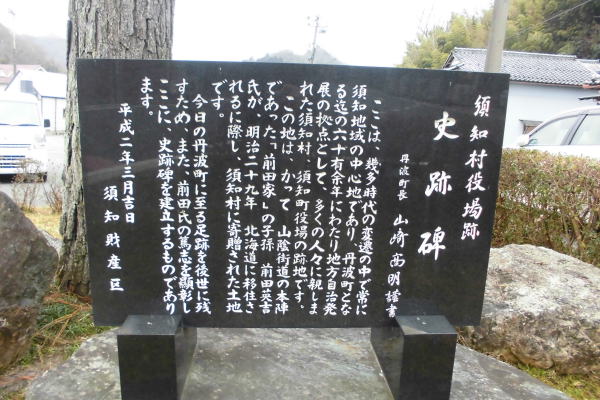 須知村役場跡
史跡碑
丹波町長 山崎高明謹書
ここは、幾多時代の変遷の中で常に
須知地域の中心地であり、丹波町とな
る迄の六十有余年にわたり地方自治発
展の拠点として、多くの人々に親しま
れた須知村、須知町役場の跡地です。
この地は、かって、山陰街道の本陣
であった「前田家」の子孫 前田英吉
氏が、明治二十九年、北海道に移住さ
れるに際し、須知村に寄贈された土地
です。
今日の丹波町に至る足跡を後世に残
すため、また、前田氏の篤志を顕彰し
ここに、史跡碑を建立するものであり
ます。
平成二年三月吉日
須知財産区